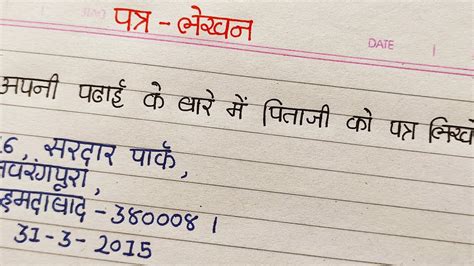 पत्र - लेखन
DATE
अपनी पढाई के बारे में पिताजी को पत्र लिखो
6, सरदार पार्क,
नवरंगपूरा,
अहमदाबाद - 380008।
31-3-2015